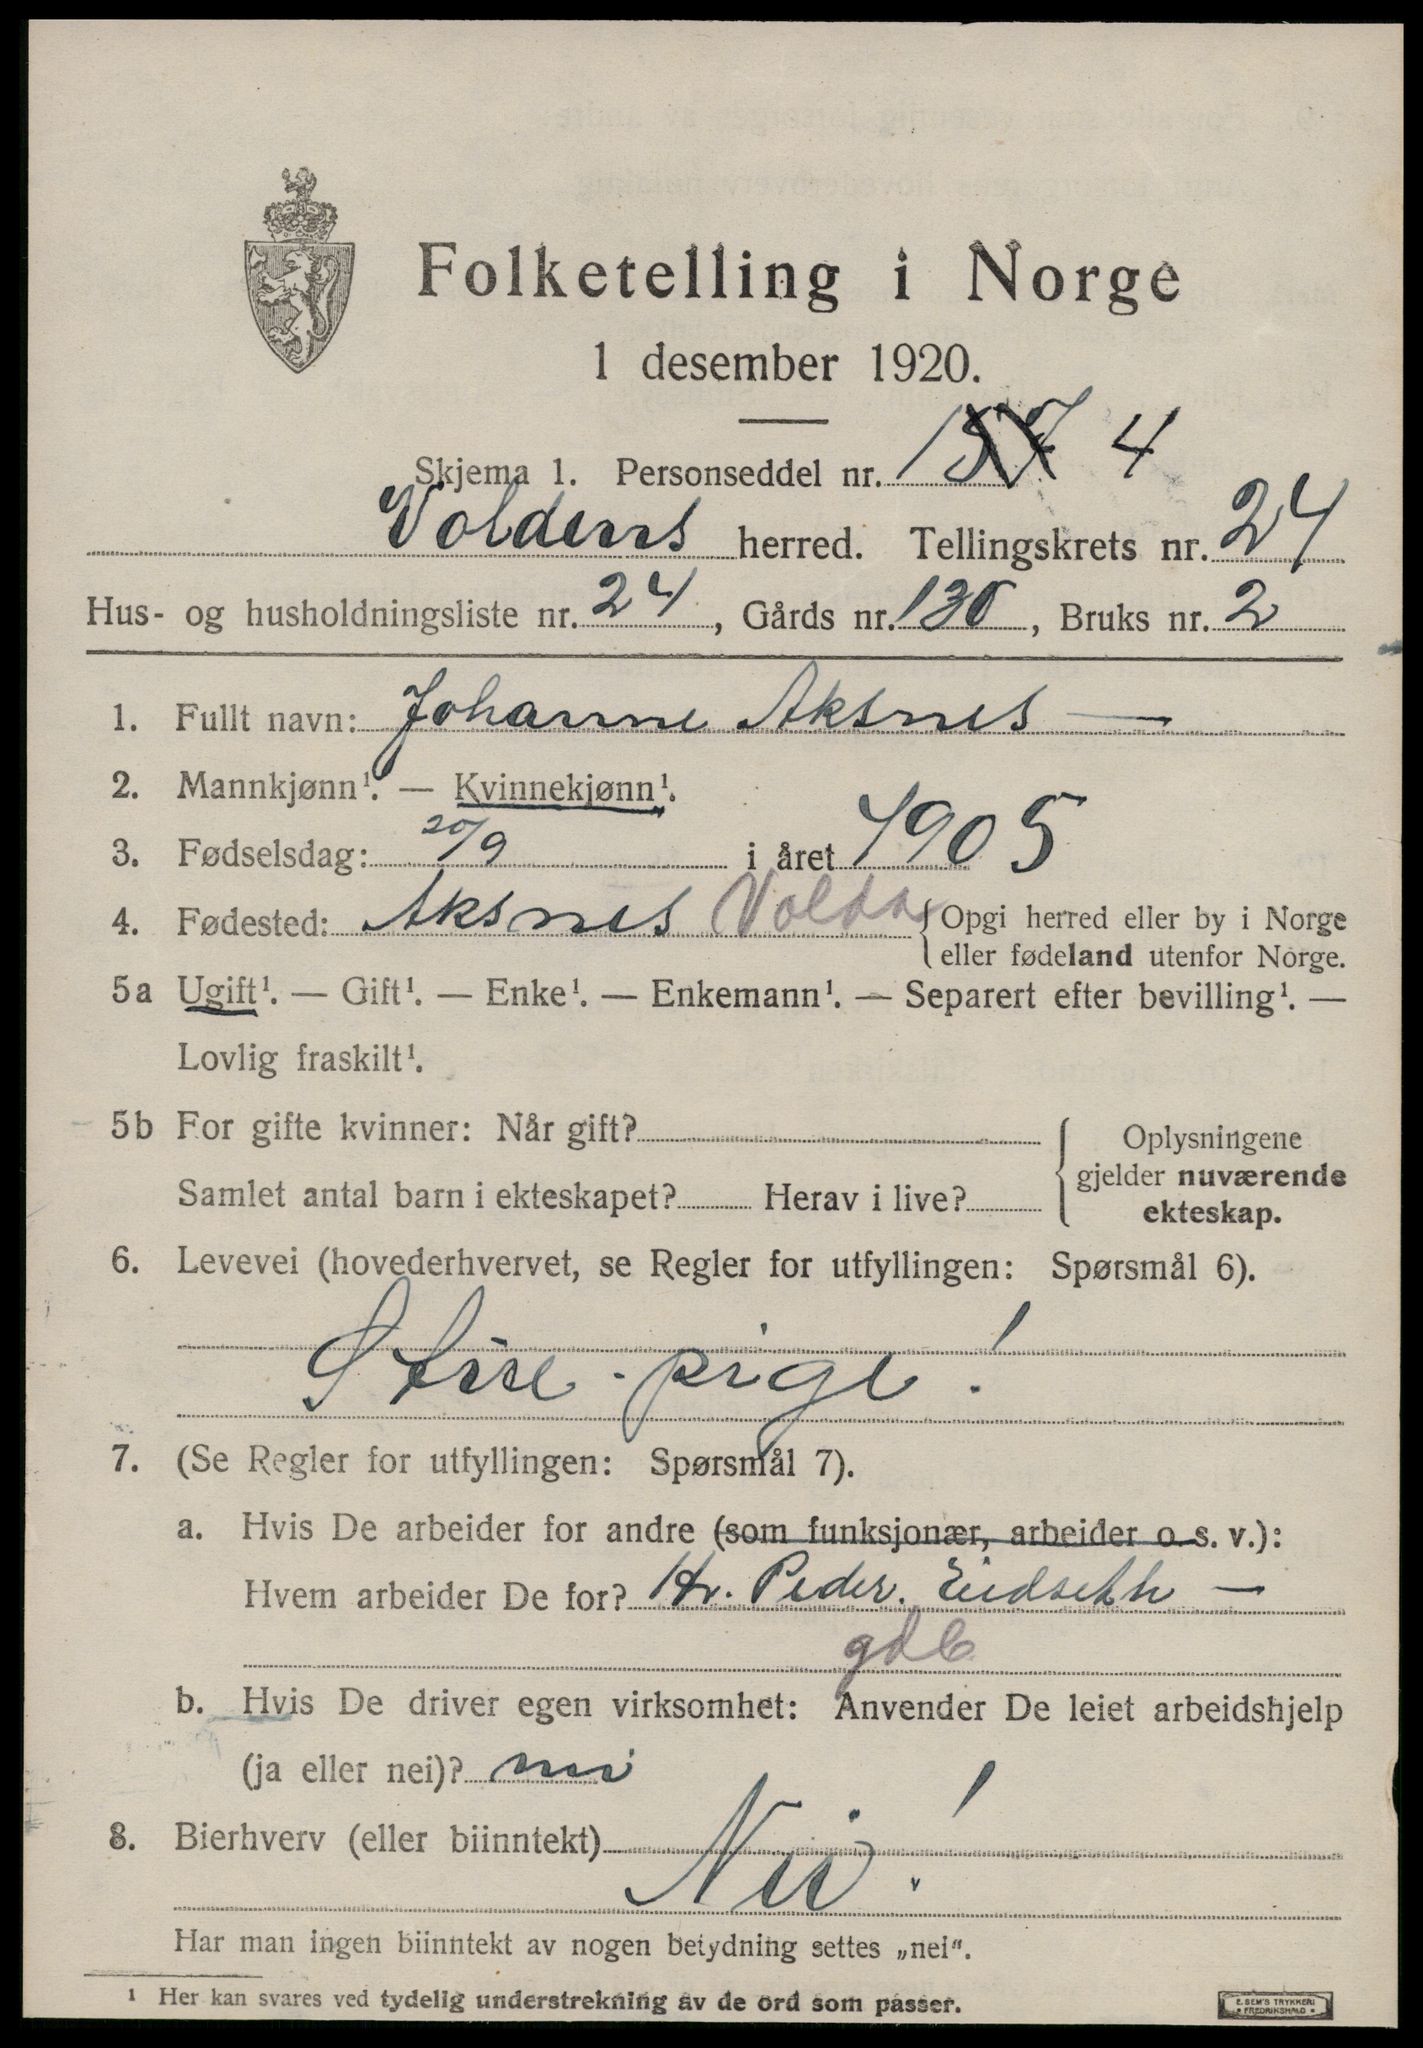 Folketelling i Norge
1 desember 1920.
Skjema 1. Personseddel nr. 157 4
Voldens herred. Tellingskrets nr. 24
Hus- og husholdningsliste nr. 24, Gårds nr. 130, Bruks nr. 2
1. Fullt navn: Johanne Aksnes —
2. Mannkjønn¹. — Kvinnekjønn¹.
3. Fødselsdag: 20/9 i året 1905
4. Fødested: Aksnes Volda { Opgi herred eller by i Norge
eller fødeland utenfor Norge.
5a Ugift¹. — Gift¹. — Enke¹. — Enkemann¹. — Separert efter bevilling¹. —
Lovlig fraskilt¹.
5b For gifte kvinner: Når gift?
Samlet antal barn i ekteskapet? Herav i live?
{ Oplysningene
gjelder nuværende
ekteskap.
6. Levevei (hovederhvervet, se Regler for utfyllingen: Spørsmål 6).
pige!
7. (Se Regler for utfyllingen: Spørsmål 7).
a. Hvis De arbeider for andre (som funksjonær, arbeider o. s. v.):
Hvem arbeider De for? Hr. Peder. Eidseth —
gdb
b. Hvis De driver egen virksomhet: Anvender De leiet arbeidshjelp
(ja eller nei)? nei
8. Bierhverv (eller biinntekt) Nei!
Har man ingen biinntekt av nogen betydning settes „nei".
¹ Her kan svares ved tydelig understrekning av de ord som passer.
E. SEM'S TRYKKERI
FREDRIKSHALD